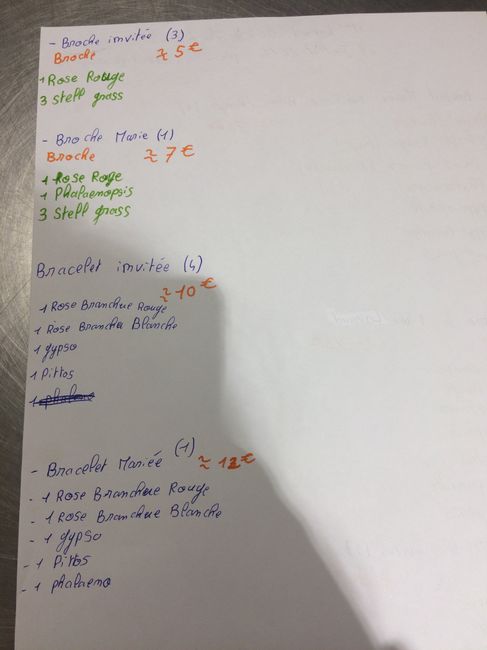 - Broche invitée (3)
Broche ≈ 5€
1 Rose Rouge
3 Steel grass
- Broche Marié (1)
Broche ≈ 7€
1 Rose Rouge
1 Phalaenopsis
3 Steel grass
Bracelet invitée (4)
≈ 10€
1 Rose Branchue Rouge
1 Rose Branchu Blanche
1 gypso
1 Pittos
1 phalaeno
- Bracelet Mariée (1) ≈ 12€
- 1 Rose Branchue Rouge
- 1 Rose Branchue Blanche
- 1 gypso
- 1 Pittos
- 1 phalaeno